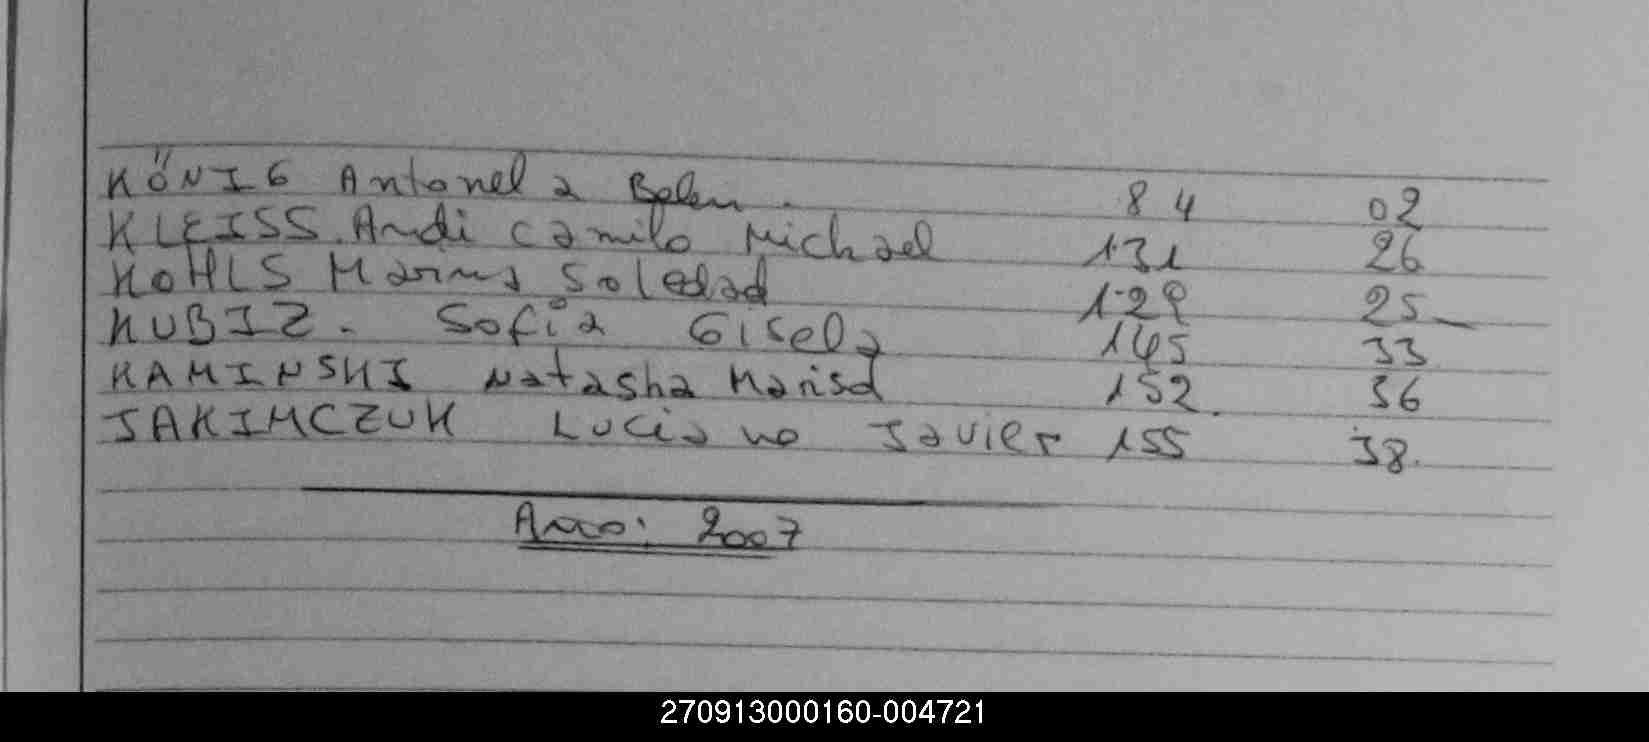 KÖNIG Antonela Belen. 84 02
KLEISS. Andi Camilo Michael 131 26
KOHLS Marina Soledad 129 25
KUBIZ. Sofia Gisela 145 33
KAMINSKI Natasha Marisa 152. 36
JAKIMCZUK Luciano Javier 155 38.
2007
270913000160-004721